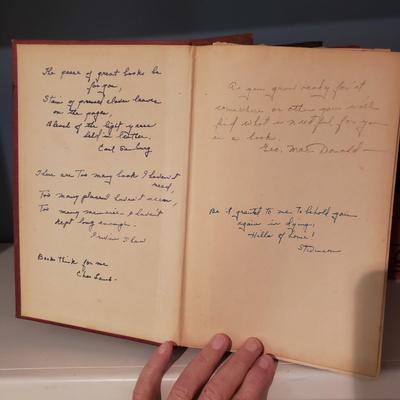 The peace of great books be
for you,
Stains of pressed clover leaves
on the pages,
Bleach of the light of years
held in leather.
Carl Sandburg
There are Too many books I haven't
read,
Too many places I haven't seen,
Too many memories I haven't
kept long enough.
Irwin Shaw
Books think for me
Chas Lamb-
As you grow ready for it
somewhere or other you will
find what is needful for you
in a book
Geo. MacDonald-
Be it granted to me To behold you
again in dying,
Hills of home!
Stevenson